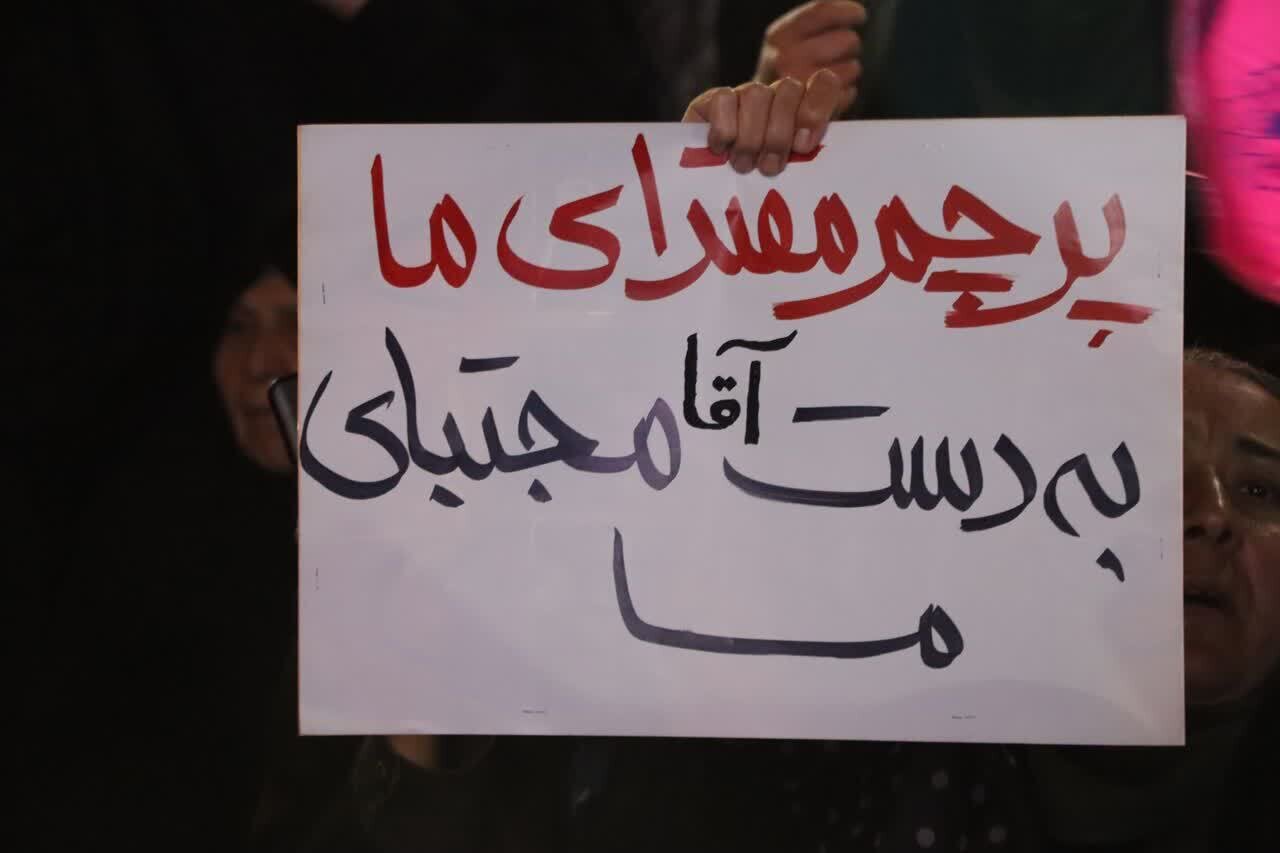 پرچم مقتدای ما
به دست آقا مجتبای
ما